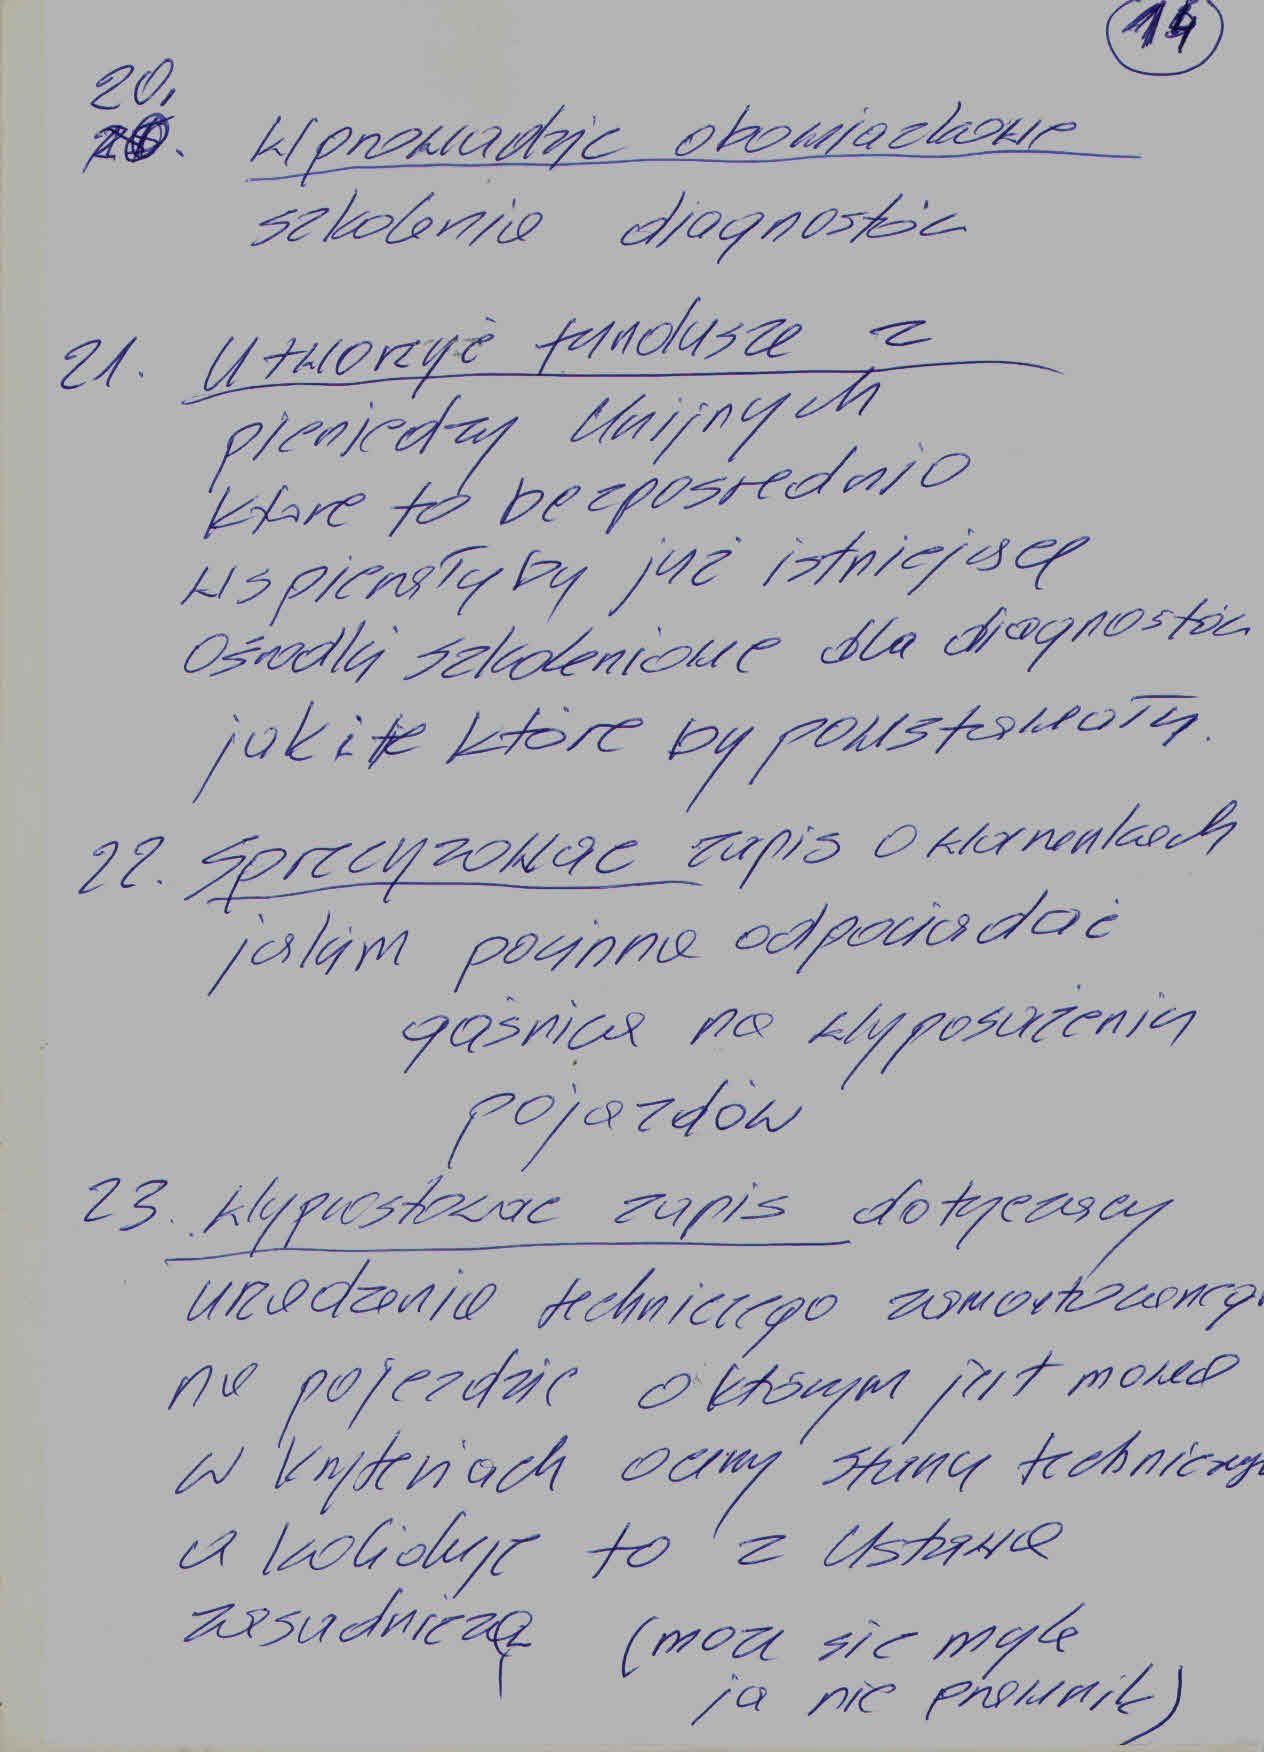 14
20.
20. Wprowadzić obowiazkowe
szkolenie diagnostów
21. Utworzyć fundusze z
pieniedzy Unijnych
które to bezpośrednio
wspierałyby już istniejace
Ośrodki szkoleniowe dla diagnostów
jak i te które by powstawały.
22. Sprecyzować zapis o warunkach
jakim powinna odpowiadać
gaśnica na wyposażeniu
pojazdów
23. Wyprostować zapis dotyczacy
urzadzenia technicznego zamontowanego
na pojezdzie o którym jest mowa
w kryteriach oceny stanu technicznego
a koliduje to z Ustawa
zasadniczą (moze sie myle
ja nie prawnik)